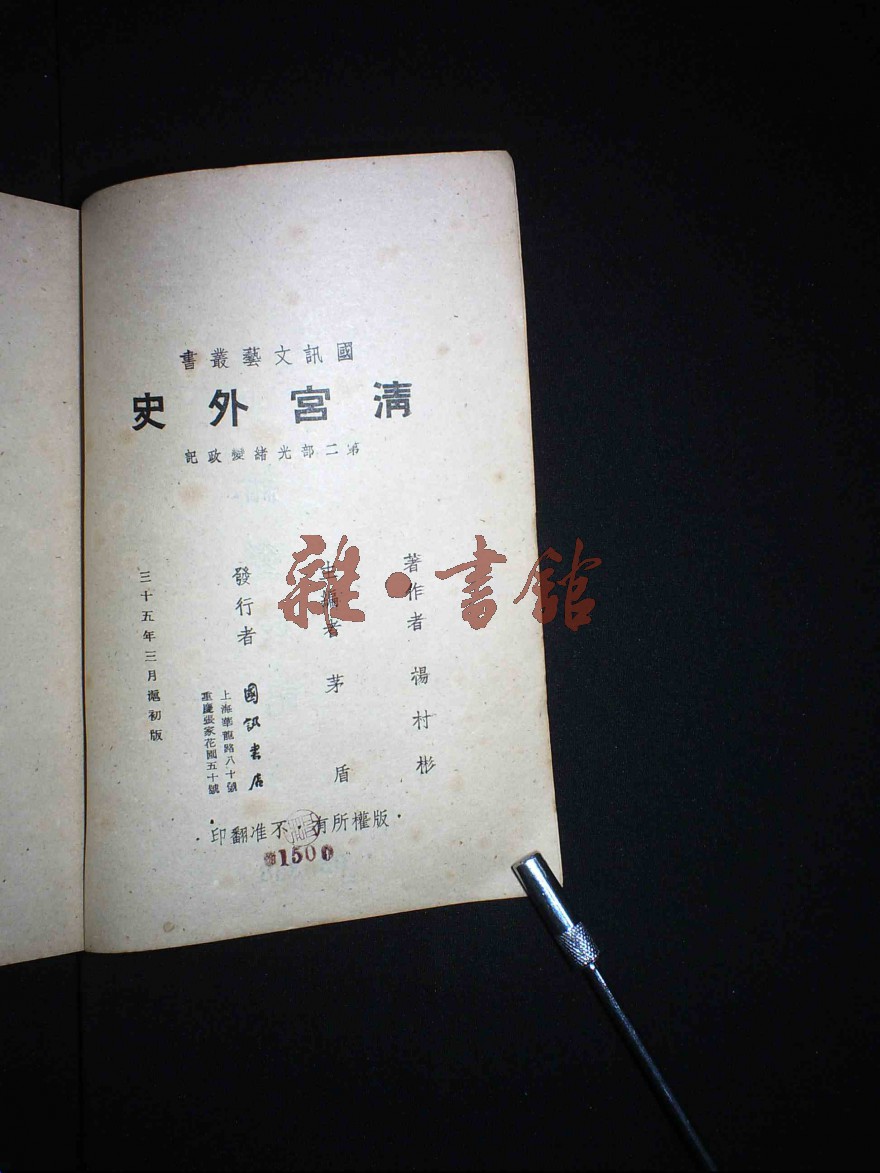 國訊文藝叢書
清宮外史
第二部光緒變政記
著作者 楊村彬
主編者 茅盾
發行者 國訊書店
上海華龍路八十號
重慶張家花園五十號
三十五年三月滬初版
·版權所有 不准翻印·
1500
雜·書館